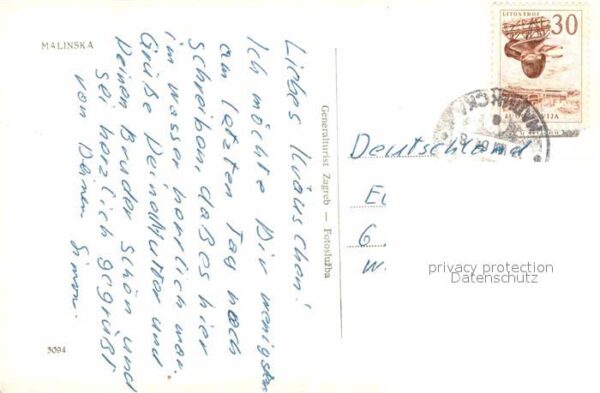 MALINSKA
Liebes
Ich möchte Dir wenigsten
am letzten Tag noch
schreiben, daß es hier
im wasser herrlich war.
Grüße Deine Mutter und
Deinen Bruder schön und
sei herzlich gegrüßt
von Deinem Simon.
3094
Generalturist Zagreb — Fotoslužba
LITOSTROJ
30
Deutschland
6
W
privacy protection
Datenschutz